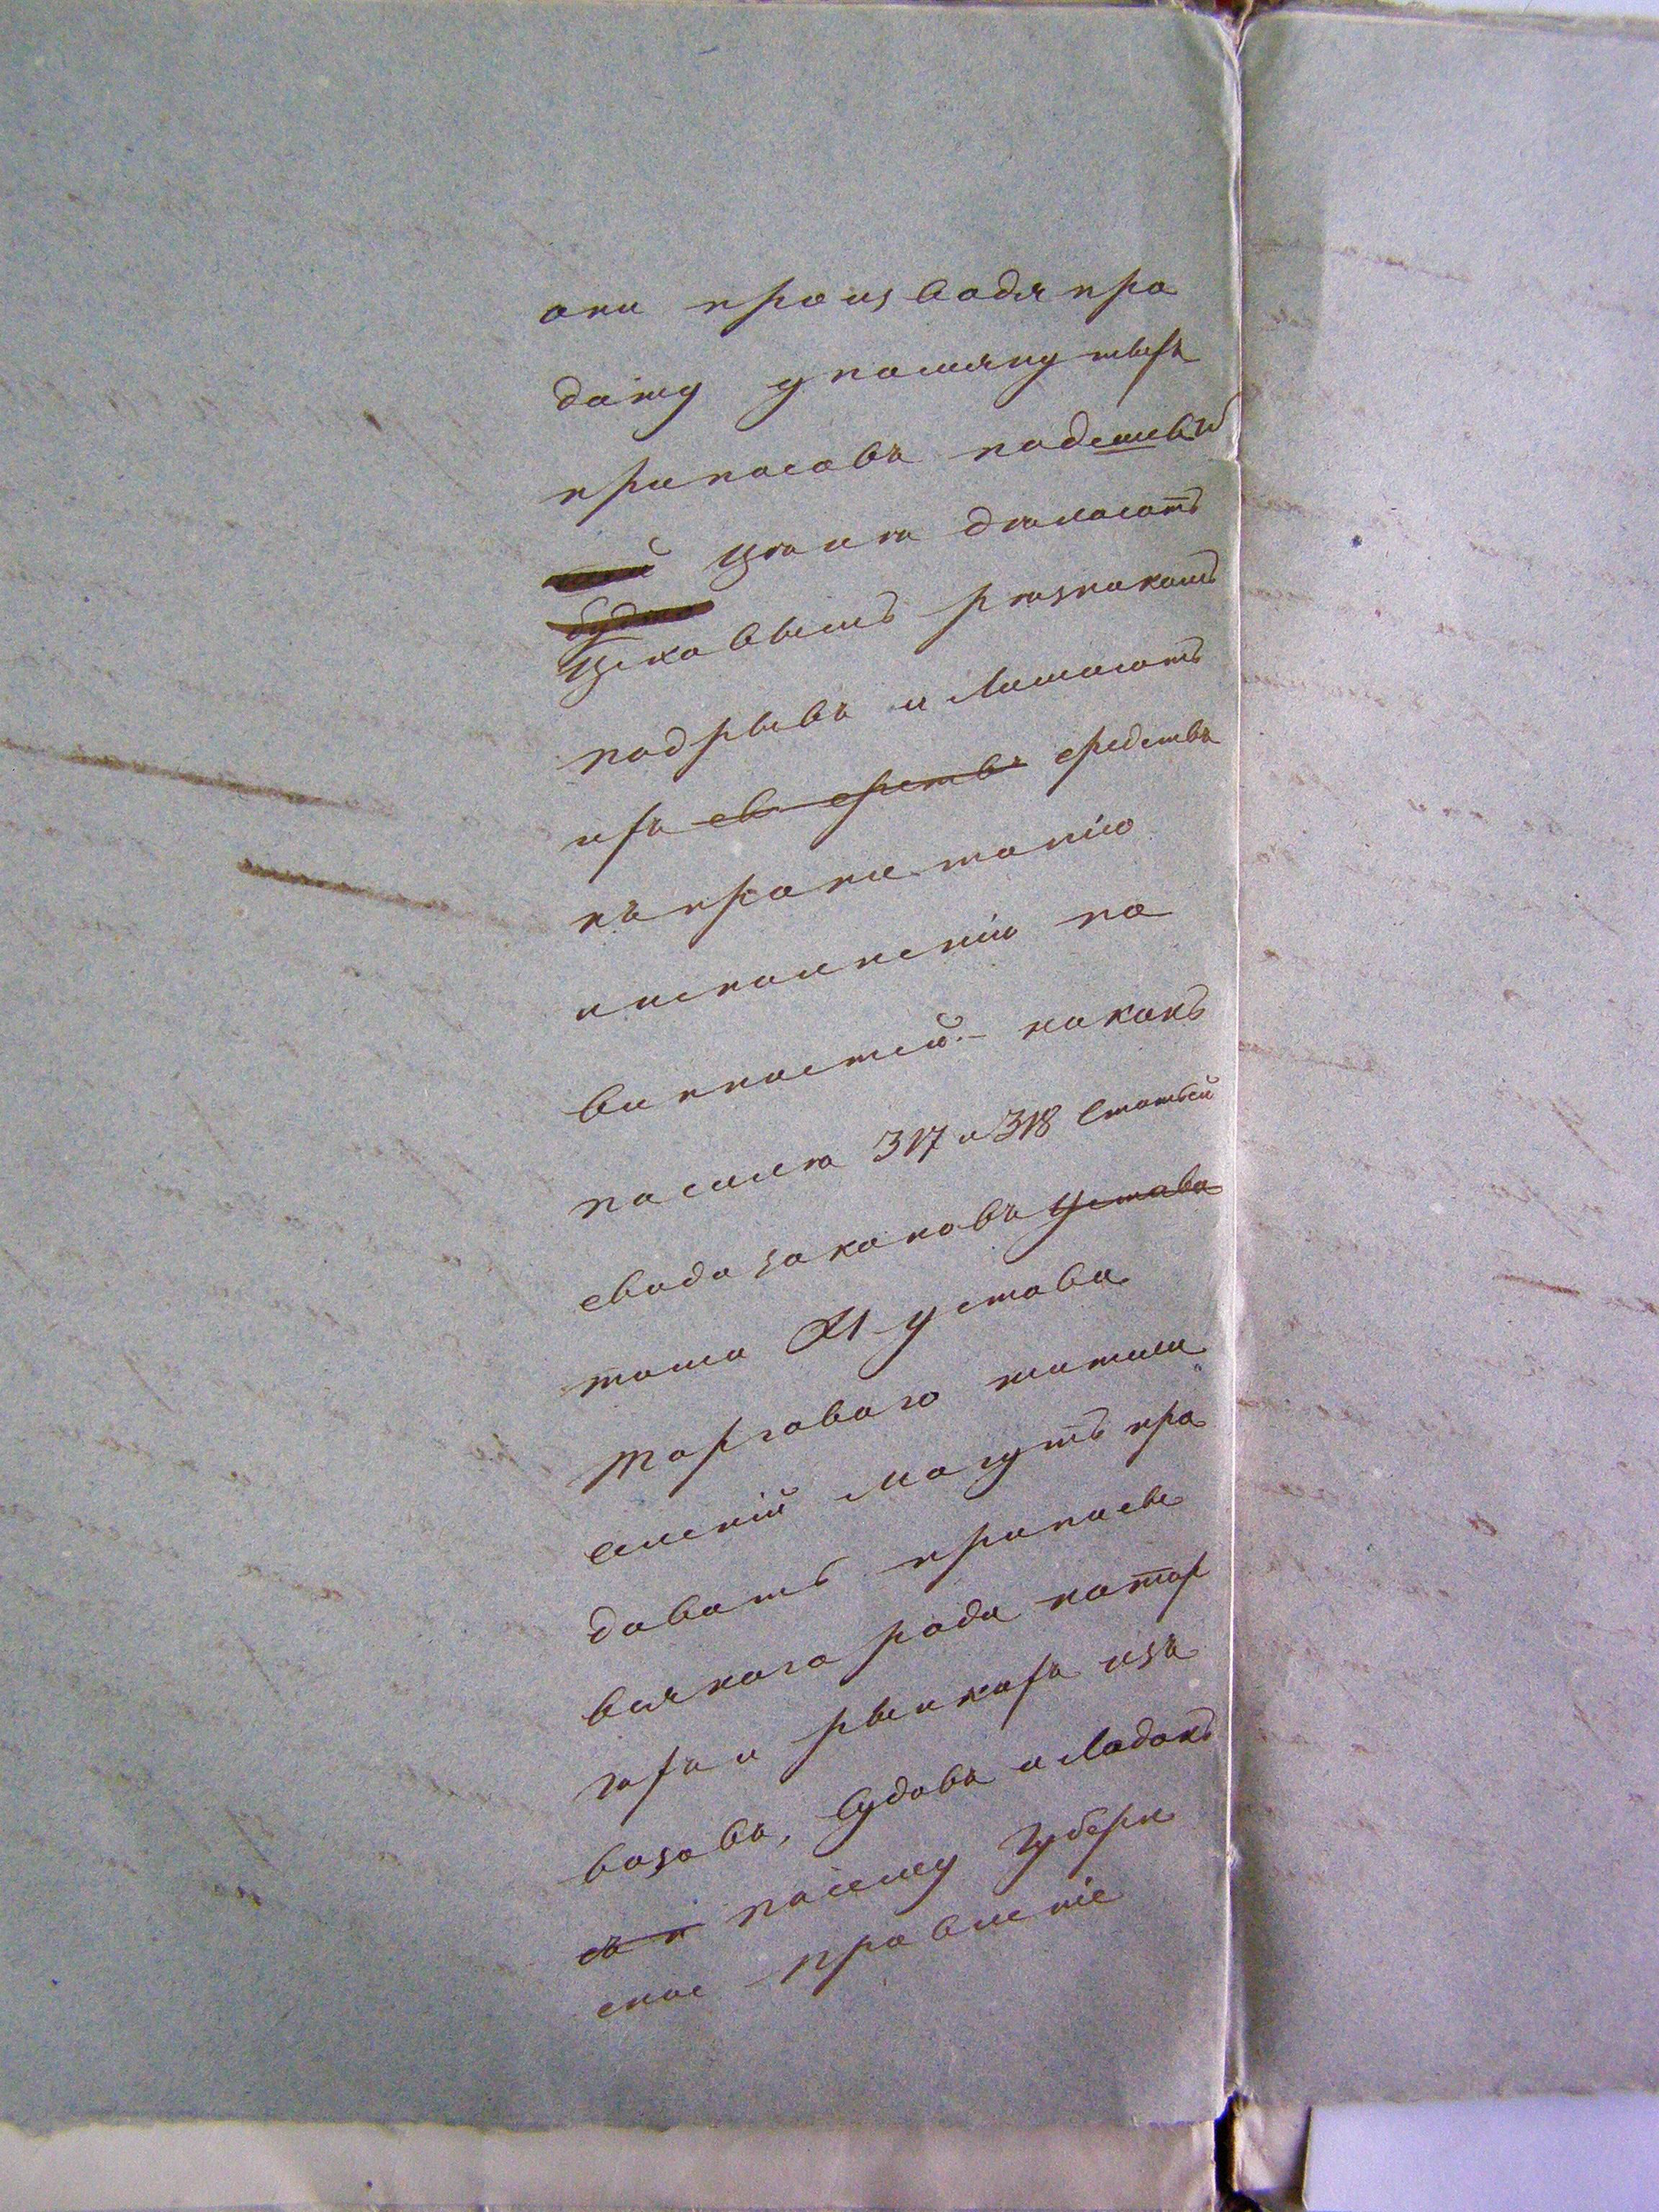 они производя про
дажу упомянутыхъ
припасовъ подешевой
цѣнѣ дѣлаютъ
цеховымъ рѣзникамъ
подрывъ и лишаютъ
ихъ средствъ
къ пропитанію
и исполненію по
винностей. – а какъ
на силѣ 317 и 318 статьи
свода законовъ устава
тома XI устава
торговаго жители
селеній могутъ про
давать припасы
всякаго рода на тор
гахъ и рынкахъ изъ
возовъ, судовъ и лодокъ
посему Губерн
ское правленіе